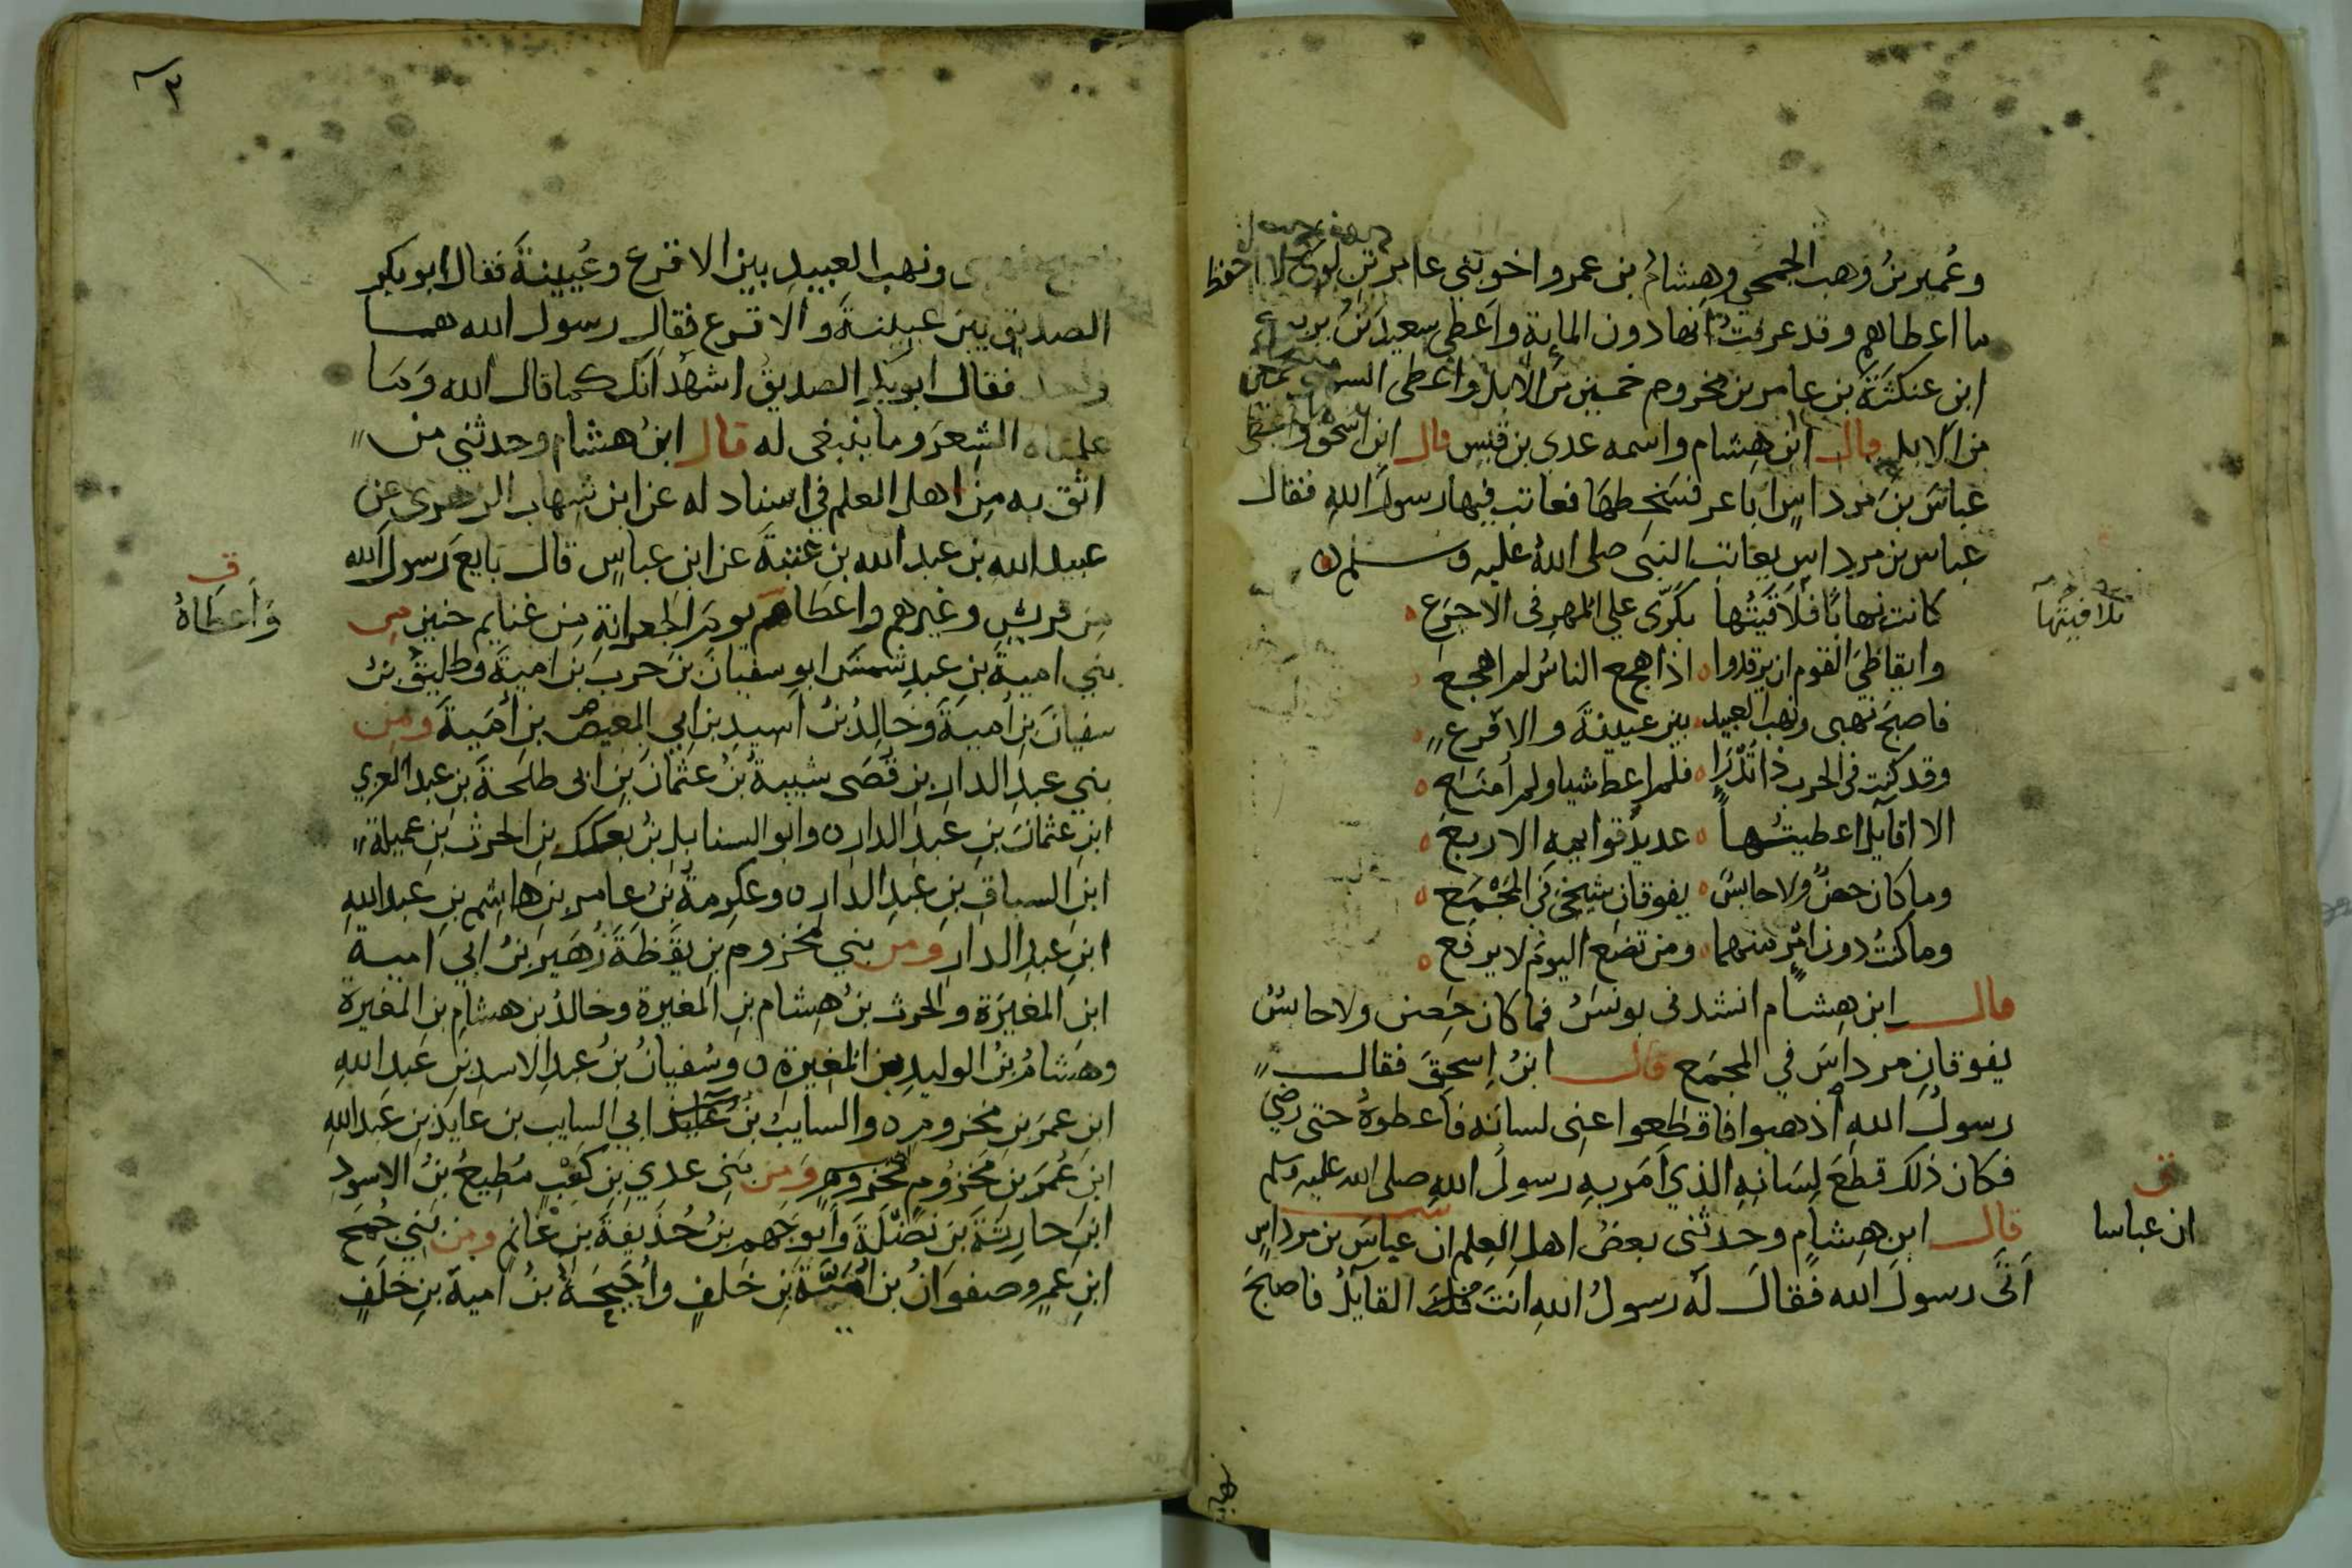 وعُمير بنُ وهب الجمحي وهشامُ بن عمرو اخو بني عامر بن لوي لا احفظ
ما اعطاهم وقد عرفتُ انها دون الماية واعطى سعيدَ بنُ يربوع
ابن عنكثةَ بن عامر بن مخزوم خمسين من الابل واعطى السهمي خمسين
من الابل قال ابن هشام واسمه عدى بن قيس قال ابن اسحق واعطى
عباسَ بنَ مرداسٍ اباعر فسَخِطها فعاتب فيها رسولَ اللهِ فقال
عباس بن مرداسٍ يعاتب النبى صلى اللهُ عليه وسلم
كانت نهابًا فلاقيتُها بكَرّى على المهر في الاجرَع
تلافيتُها
وايقاظيَ القوم ان يرقدوا اذا هجع الناسُ لم اهجع
فاصبحَ نهبى ونهب العبيد بين عيينةَ والاقرع
وقد كنت في الحرب ذا تُدْرَإ فلم اعط شيا ولم اُمنَع
الا افايل اعطيتُها عديدُ قوايمه الاربع
وما كان حصنٌ ولا حابسٌ يفوقان شيخىَ في المَجْمَع
وما كنتُ دون امرٍ منهما ومن تضع اليومَ لا يرفع
قال ابن هِشام انشدنى يونسُ فما كان حِصن ولا حابسُ
يفوقانِ مرداسَ في المجمَع قال ابنُ اِسحقَ فقال
رسولُ الله اذهبوا فاقطعوا عنى لسانَه فاعطوهُ حتى رضيَ
فكان ذلك قطعَ لِسَانِهِ الذي اَمَر به رسولُ اللهِ صلى الله عليه وسلم
قال ابن هِشامٍ وحدثنى بعضُ اهلِ العِلم ان عباسَ بن مرداسٍ
ق
ان عباسا
اَتَى رسولَ الله فقالَ لَه رسولُ اللهِ انتَ القايلُ فاصبحَ
٣
ونهب العبيدِ بين الاقرع وعُيينةَ فقال ابو بكر
الصديق بين عيينةَ والاقرع فقال رسول الله هما
واحد فقال ابو بكر الصديقُ اشهدُ اَنَّك كما قال الله وَمَا
علمناه الشِعرَ وما ينبغى له قال ابنُ هشام وحدثني من
اثق به مِن اهل العلم في اسناد له عن ابن شهاب الزهرى عن
عبيد الله بن عبد الله بن عتبةَ عن ابن عباسٍ قال بايعَ رسولَ الله
من قريشٍ وغيرهم واعطاهم يومَ الجعرانةِ من غنايم حنينٍ من
ق
وَأَعطَاهُ
بني اميةَ بنِ عبدِ شمسٍ ابو سفيانَ بنَ حربِ بن اميةَ وطليقُ بنُ
سفيانَ بنِ اُميةَ وخَالِدُ بنُ اَسيدِ بن ابي العيص بنِ اُمَيةَ ومِن
بني عبدِ الدار بنِ قُصَى شيبةُ بنُ عثمانَ بنِ ابى طلحةَ بن عبد العزي
ابن عثمانَ بنِ عَبدِ الدار وابو السنابل بنُ بعكك بنِ الحرث بنِ عميلة
ابن السباقِ بنِ عبدِ الدار وعكرمةُ بنُ عامر بنِ هاشِم بنِ عَبدِ اللهِ
ابنِ عبدِ الدارِ ومن بني مخزومِ بنِ يَقَظَةَ زُهَيرُ بنُ ابي اميةَ
ابن المغيرَة والحرث بنُ هِشام بنِ المغيرة وخالدُ بن هشامِ بن المغيرة
وهشامُ بنُ الوليدِ بن المُغيرةِ وسُفيانُ بنُ عبدِ الاسدِ بنِ عَبدِ اللهِ
ابنِ عمرَ بنِ مخزومٍ والسايبُ بنُ ابي السايب بن عايذ بنِ عَبدِ اللهِ
ابنِ عُمَرَ بنِ مَخزُومٍ ومن بَنِى عدي بنِ كَعْبٍ مُطِيعُ بنُ الاسودِ
ابنِ حارِثةَ بنَ نَضْلَةَ وَابو جَهم بنُ حُذَيفةَ بنِ غَانمٍ ومن بَنِي جُمَحَ
ابنِ عمرٍو صفوَانُ بن اُمَيَّةَ بنِ خلفٍ واُحَيحَةُ بنُ اميةَ بنِ خَلَفٍ